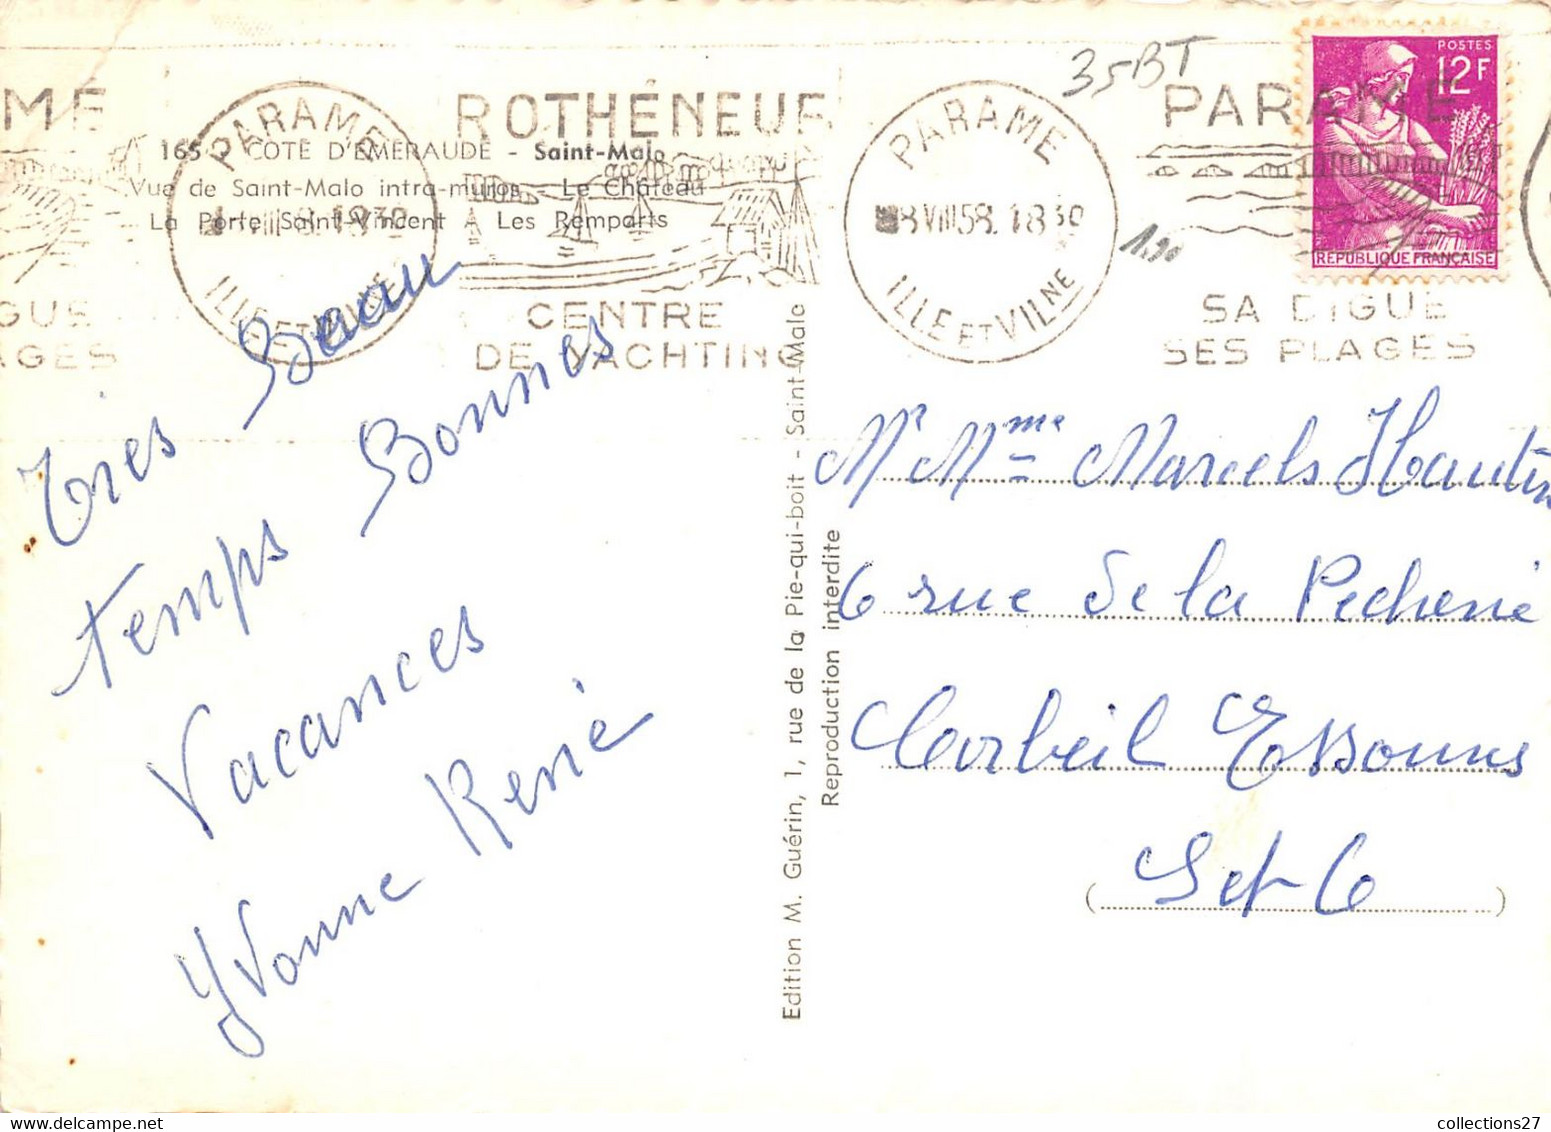 35BT
POSTES
12F
REPUBLIQUE FRANÇAISE
1.90
PARAME
ILLE ET VILNE
ROTHÉNEUF
CENTRE
DE YACHTING
PARAME
8 VIII 58. 18 30
ILLE ET VILNE
PARAME
SA DIGUE
SES PLAGES
165 - COTE D'EMERAUDE - Saint-Malo
Vue de Saint-Malo intra-muros - Le Château
La Porte Saint-Vincent - Les Remparts
Très Beau
temps Bonnes
Vacances
Yvonne René
Edition M. Guérin, 1, rue de la Pie-qui-boit - Saint-Malo
Reproduction interdite
Mr Mme Marcels Hautin
6 rue de la Pecherie
Corbeil Essonnes
(Set 6)
collections27